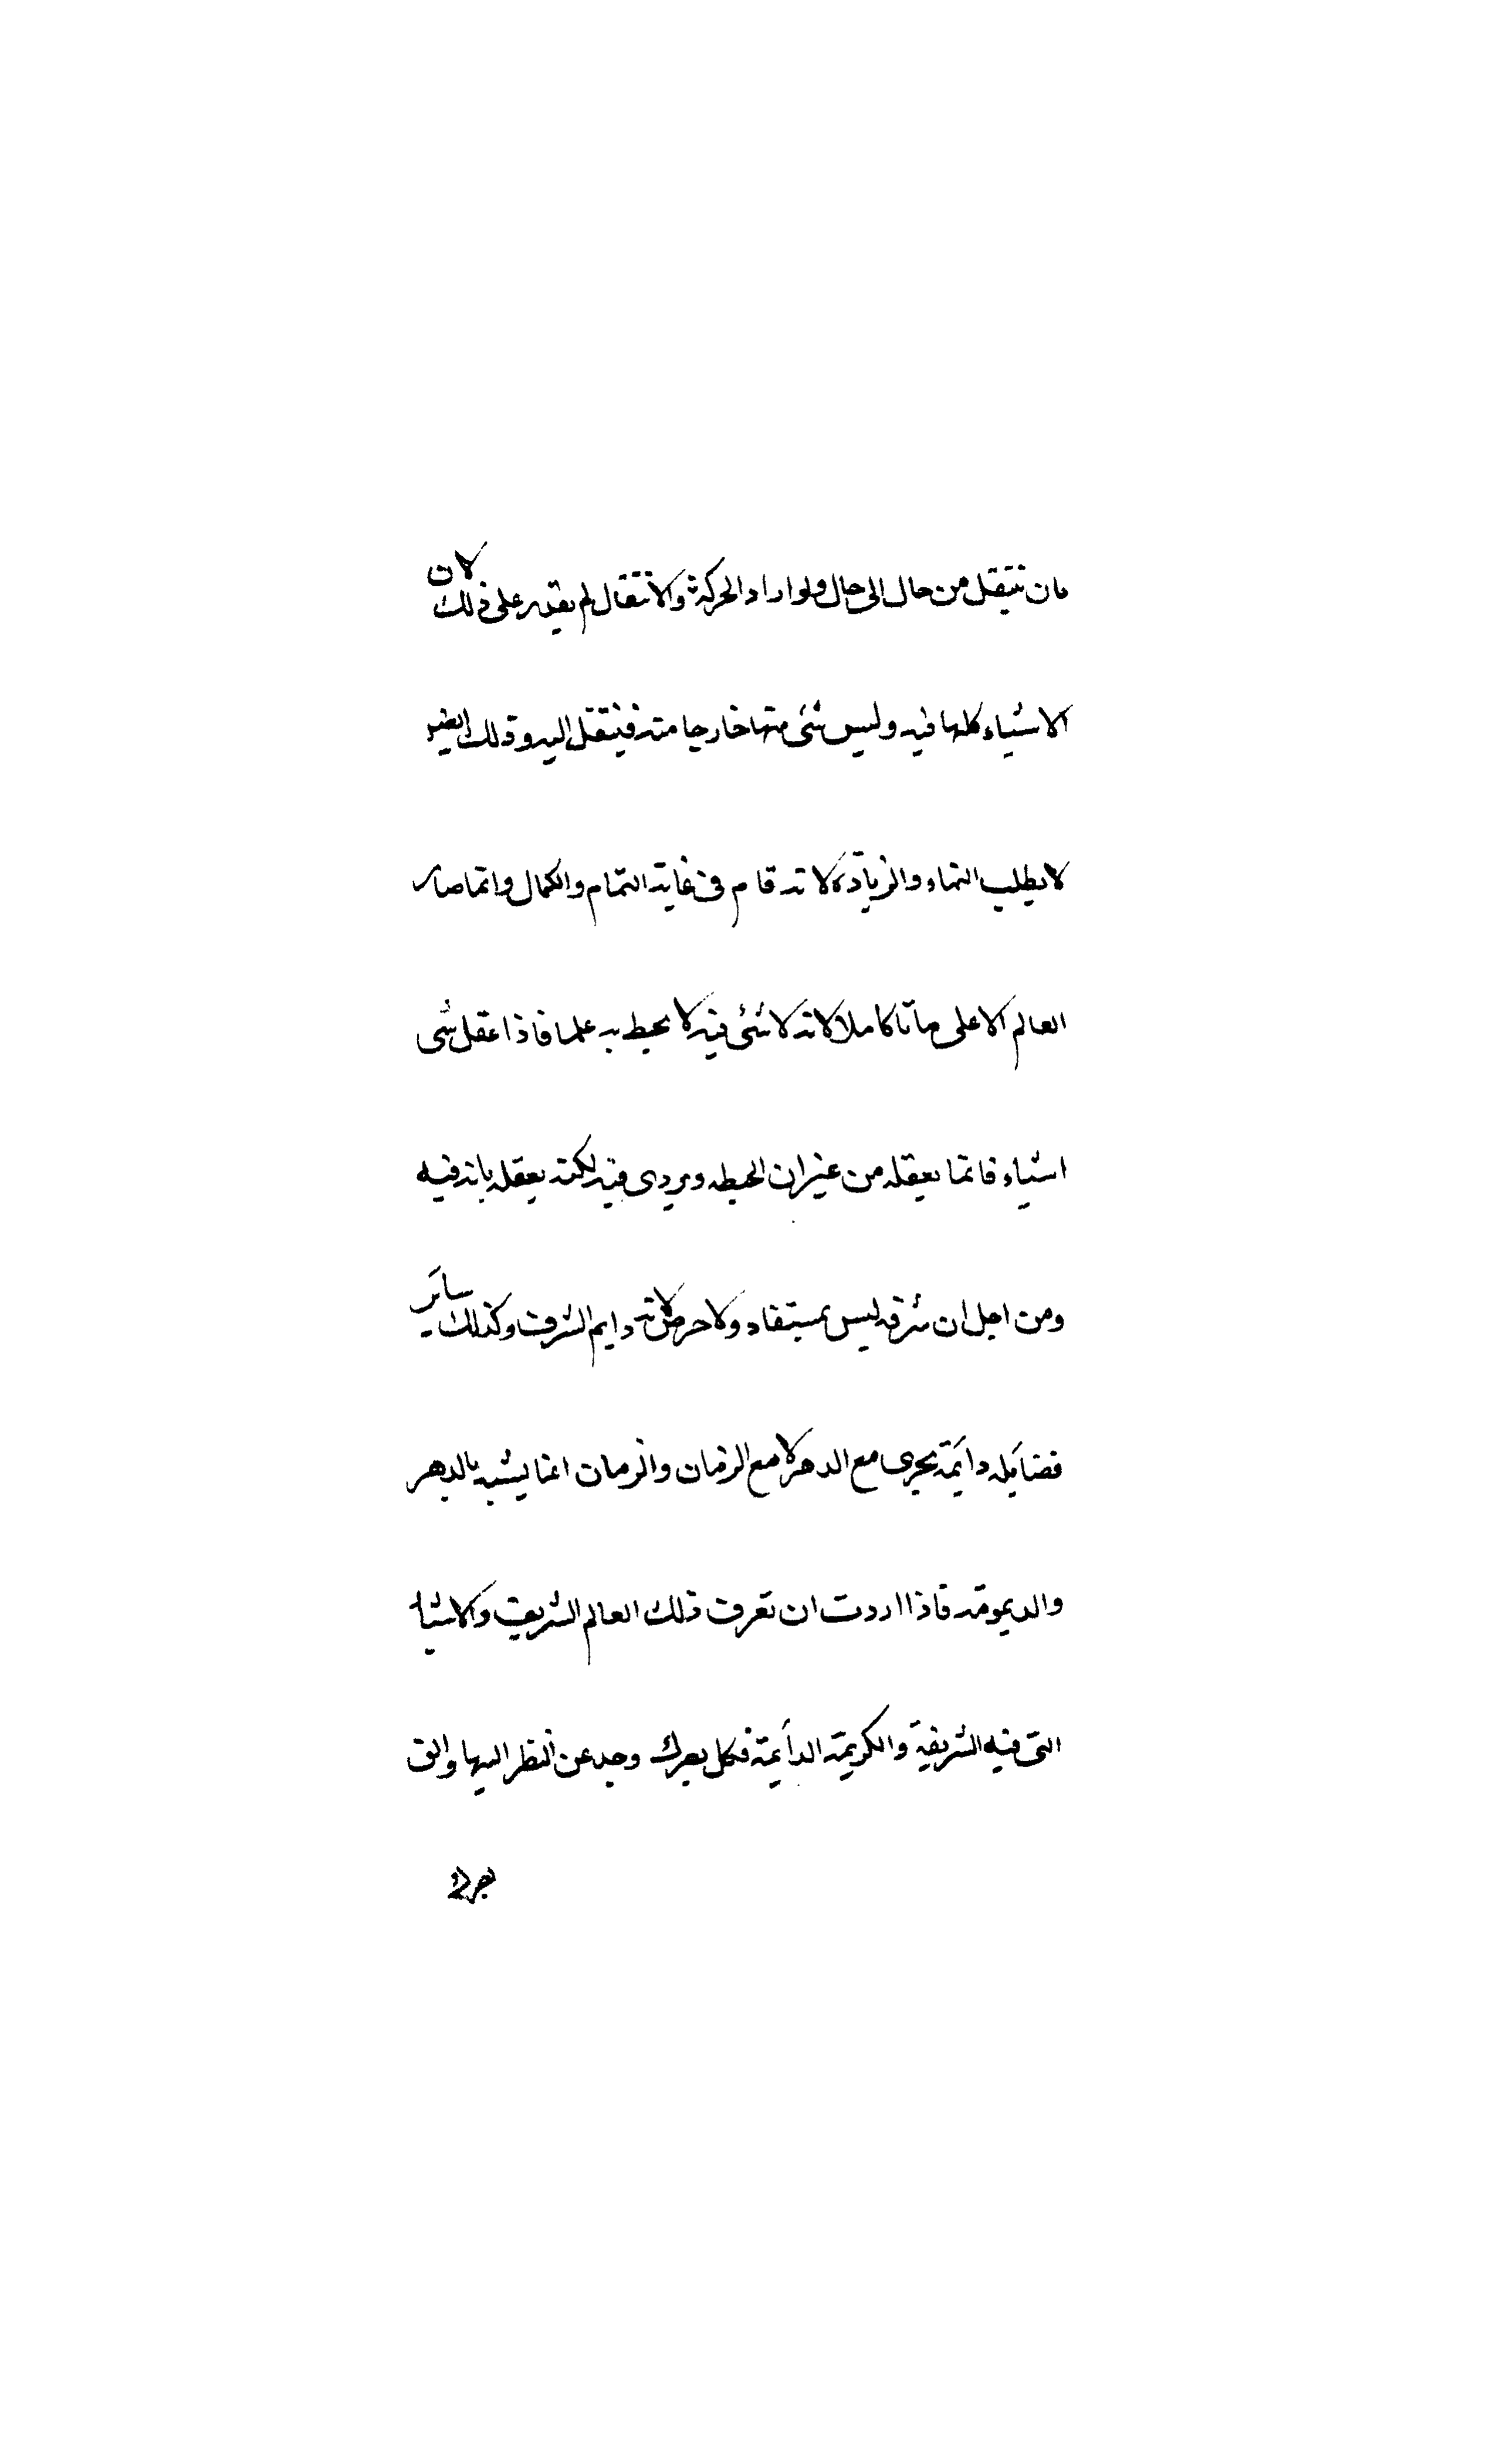 مان ننتقل من حال الى حال ولو اراد الحركة والانتقال لم يقدر على ذلك لان
الاشياء كلها فيه وليس شئ منها خارجا منه فينتقل اليه وذلك ايضا
لا يطلب التماء والزيادة لانه قام في غاية التمام والكمال وانما صار
العالم الاعلى ماتا كاملا لانه لا شئ فيه لا يحيط به علما فاذا عقل شئ
اشياء فانما يعقله من غير ان لحيطه ويردى فيه لكنه يعقله بانه فيه
ومن اجل ان شرفه ليس بمستفاد ولا حرض لانه دايم الشرف وكذلك ساير
فضايله دائمة يجرى مع الدهر لا مع الزمان والزمان انما يشبه بالدهر
والديمومة فاذا اردت ان تعرف ذلك العالم الشريف والاشيا
التى فيه الشريفة والكريمة الدائمة فكل بصرك وجد عن النظر اليها والق
بصرك